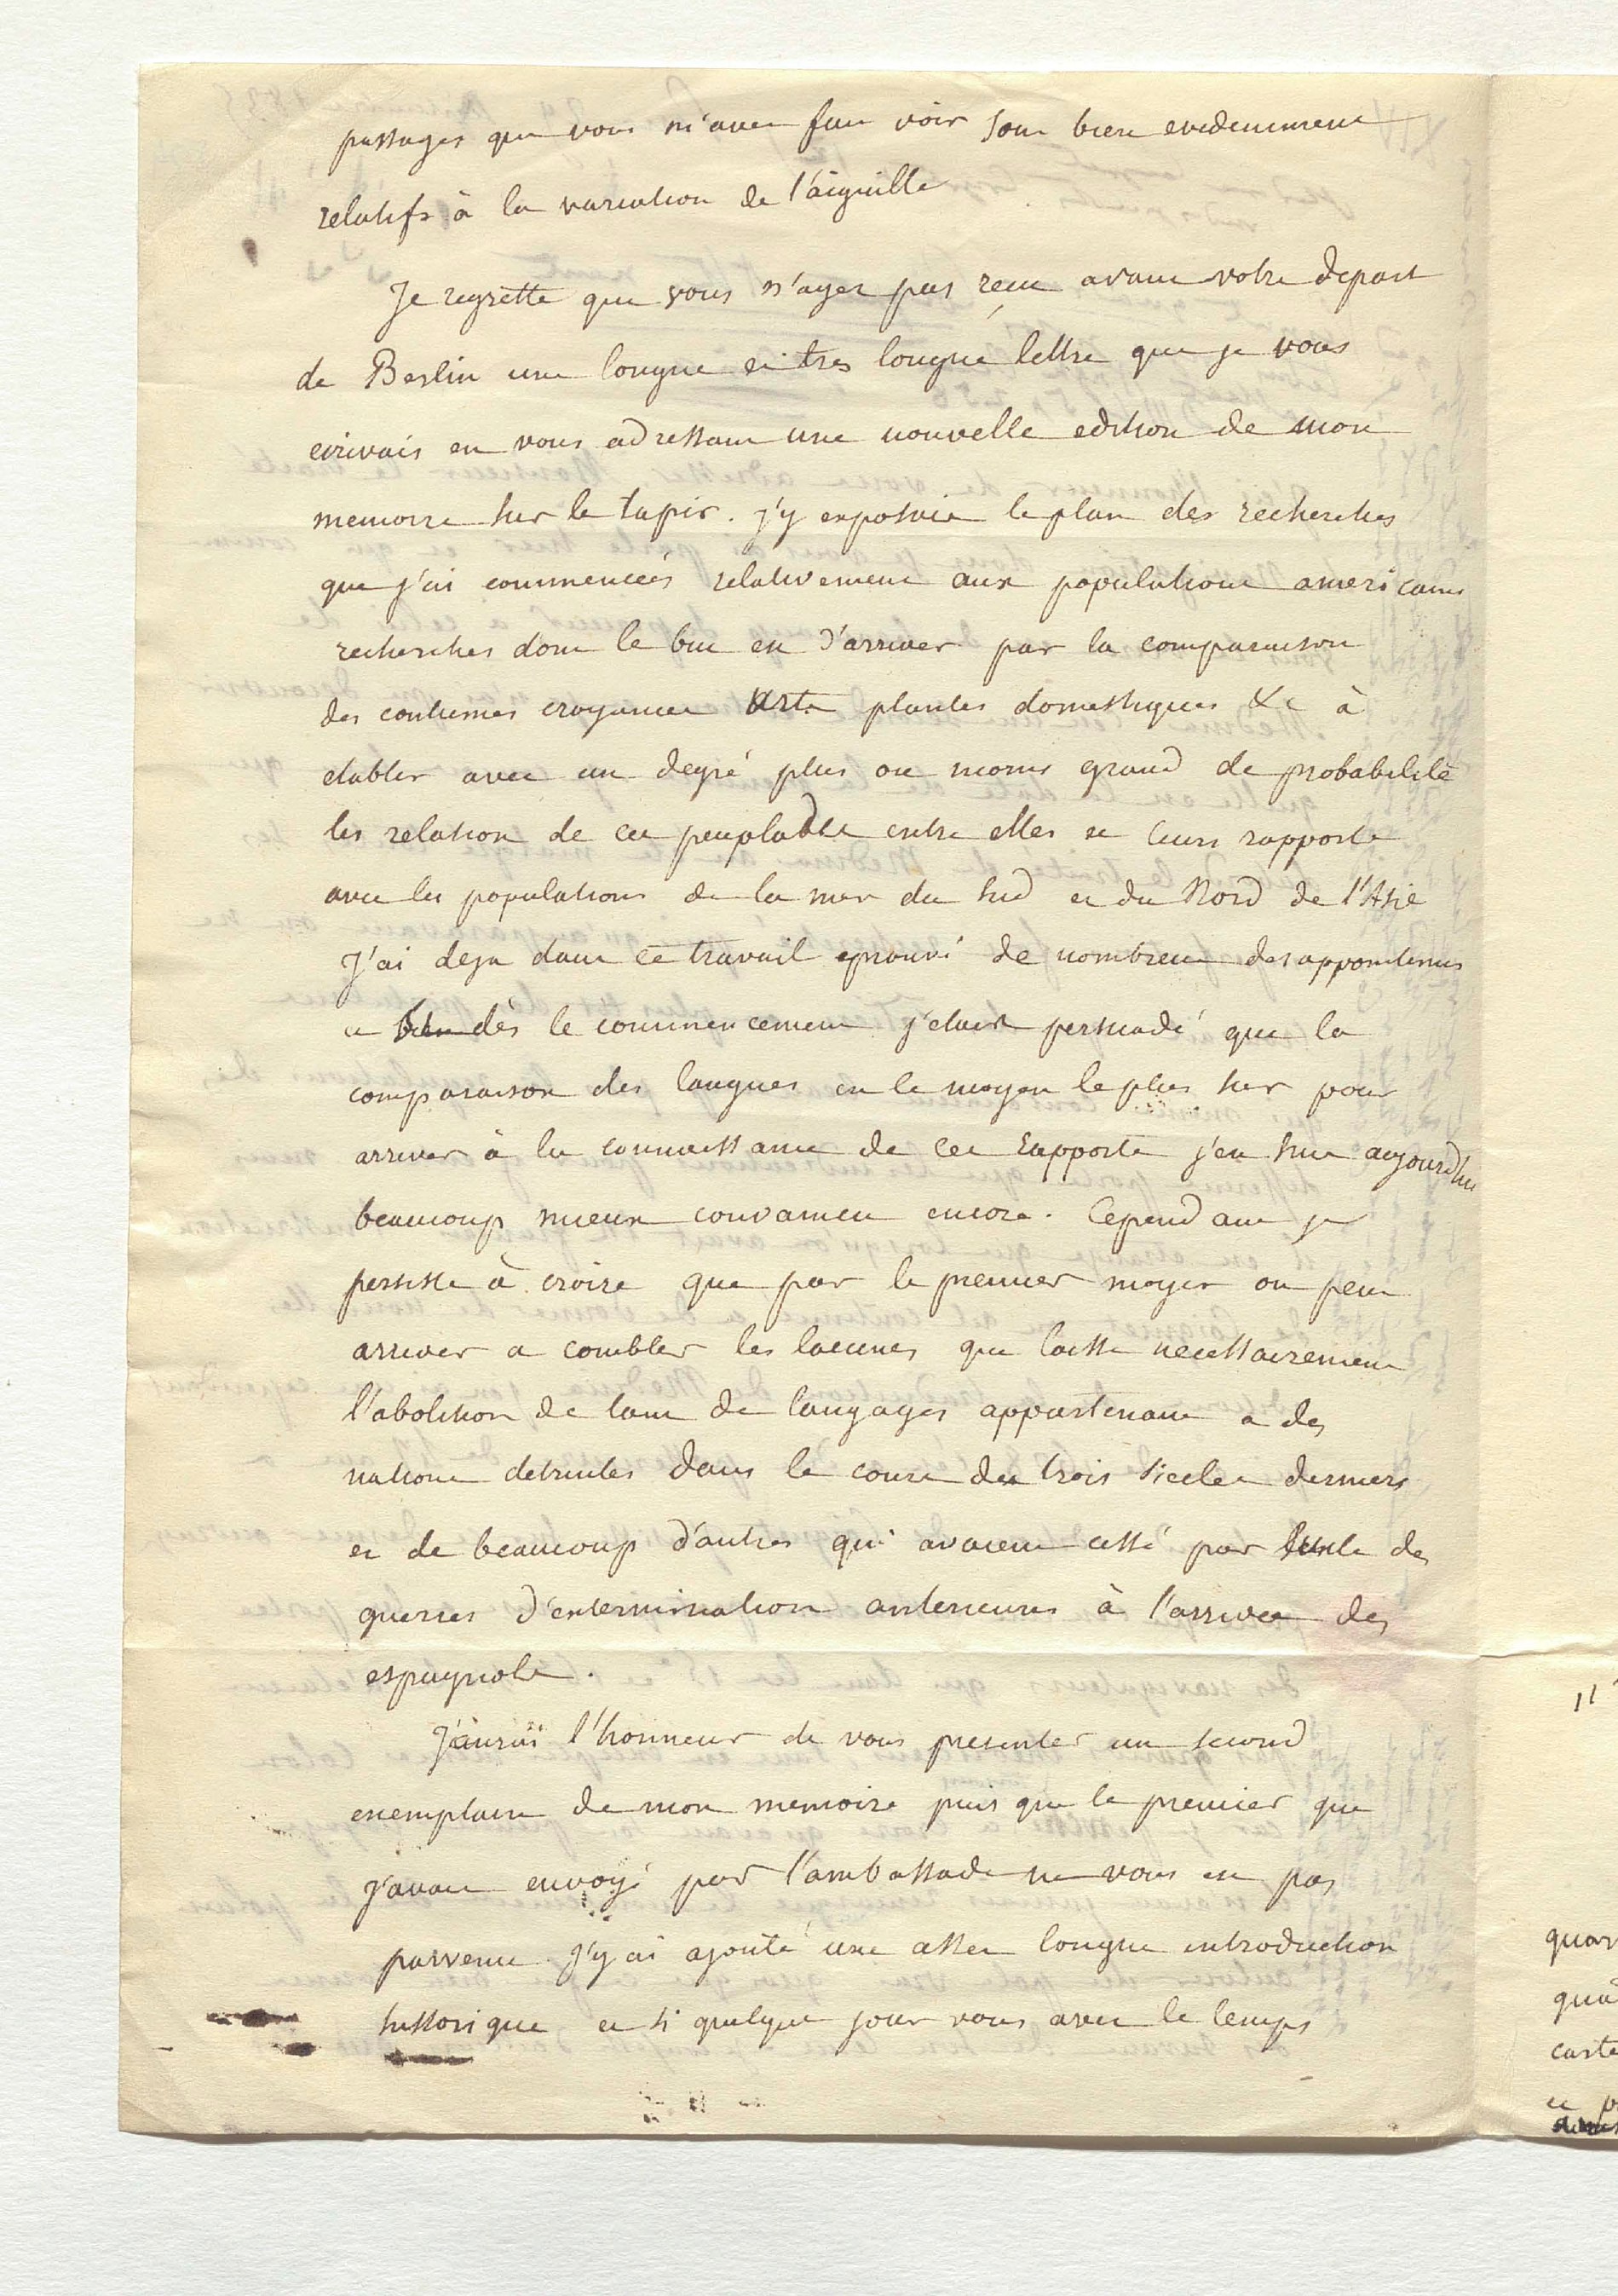 passages que vous m'avez fait voir sont bien evidemment
relatifs à la variation de l'aiguille
Je regrette que vous n'ayez pas reçu avant votre depart
de Berlin une longue et tres longue lettre que je vous
ecrivais en vous adressant une nouvelle edition de mon
memoire sur le tapir. j'y exposais le plan des recherches
que j'ai commencées relativement aux populations americaines
recherches dont le but est d'arriver par la comparaison
des coutumes croyances arts plantes domestiques &c à
etablir avec un degré plus ou moins grand de probabilité
les relations de ces peuplades entre elles et leurs rapports
avec les populations de la mer du sud et du Nord de l'Asie
J'ai deja dans ce travail eprouvé de nombreux desappointemens
et dès le commencement j'etais persuadé que la
comparaison des langues est le moyen le plus sur pour
arriver à la connaissance de ces rapports j'en suis aujourdhui
beaucoup mieux convaincu encore. Cependant je
persiste à croire que par le premier moyen on peut
arriver a combler les lacunes que laisse necessairement
l'abolition de tant de langages appartenant a des
nations detruites dans le cours des trois siecles derniers
et de beaucoup d'autres qui avaient cessé par suite des
guerres d'extermination anterieures à l'arrivée des
espagnols.
J'aurai l'honneur de vous presenter un second
exemplaire de mon memoire puis que le premier que
j'avais envoyé par l'ambassade ne vous est pas
parvenu. j'y ai ajouté une assez longue introduction
historique et si quelque jour vous avez le temps
quar
qua
carte
et p